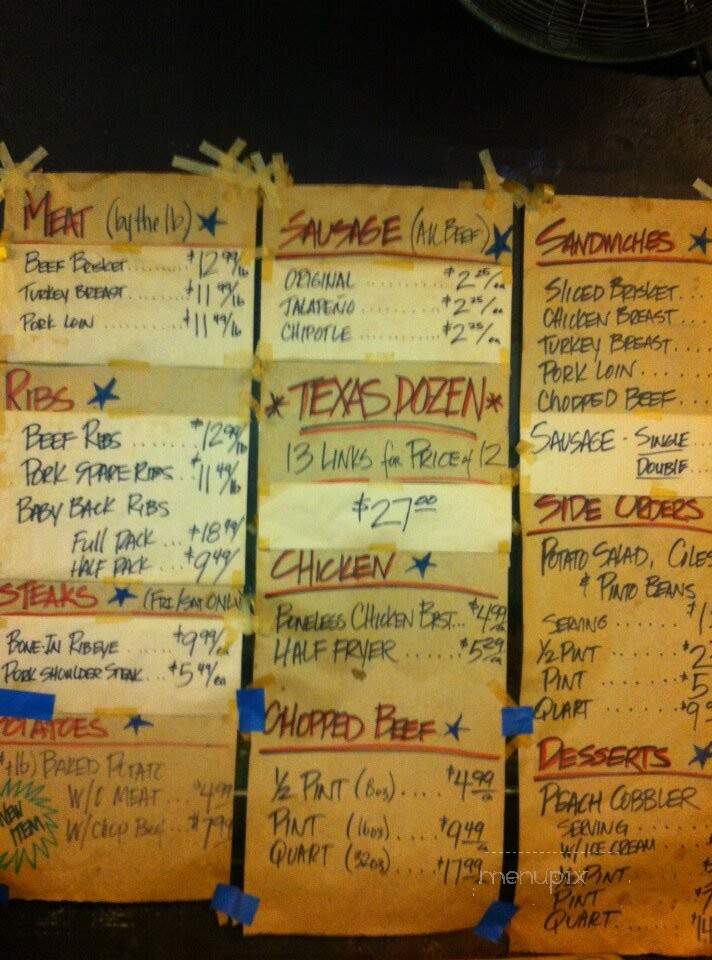 MEAT (by the lb)
BEEF BRISKET ........ $12.99/lb
TURKEY BREAST ........ $11.99/lb
PORK LOIN ........ $11.49/lb
RIBS
BEEF RIBS ...... $12.99/lb
PORK SPARE RIBS .. $11.49/lb
BABY BACK RIBS
FULL RACK ... $18.99/
HALF RACK ... $9.49/
STEAKS (FRI/SAT ONLY
BONE-IN RIBEYE ... $9.99/ea
PORK SHOULDER STEAK ... $5.49/ea
POTATOES
BAKED POTATO
W/O MEAT ... $4.99
W/CHOP BEEF ... $7.99
NEW ITEM
SAUSAGE (ALL BEEF)
ORIGINAL ........ $2.25/ea
JALAPEÑO ........ $2.25/ea
CHIPOTLE ........ $2.25/ea
*TEXAS DOZEN*
13 LINKS for PRICE of 12
$27.00
CHICKEN
BONELESS CHICKEN BRST... $4.99 ea
HALF FRYER ...... $5.29 ea
CHOPPED BEEF
1/2 PINT (8oz) .... $4.99 ea
PINT (16oz) .... $9.49 ea
QUART (32oz) .... $17.99 ea
SANDWICHES
SLICED BRISKET...
CHICKEN BREAST...
TURKEY BREAST....
PORK LOIN......
CHOPPED BEEF...
SAUSAGE - SINGLE...
DOUBLE...
SIDE ORDERS
POTATO SALAD, COLES
& PINTO BEANS
SERVING ...... $1
1/2 PINT ...... $2
PINT ...... $5
QUART ...... $9
DESSERTS
PEACH COBBLER
SERVING ......
W/ ICE CREAM ....
1/2 PINT .....
PINT .....
QUART ..... $14
menupix